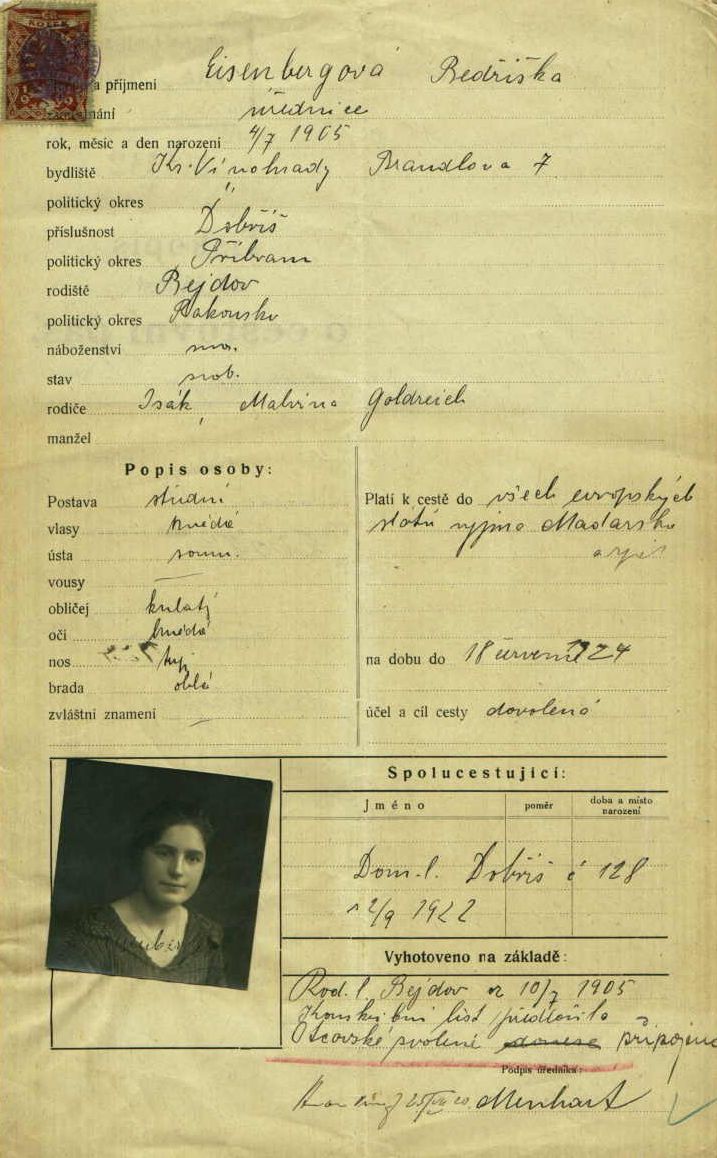 a příjmení Eisenbergová Bedřiška
úřednice
rok, měsíc a den narození 4/7 1905
bydliště Kr. Vinohrady Brandlova 7
politický okres "
příslušnost Dobříš
politický okres Příbram
rodiště Bejdov
politický okres Rakousko
náboženství mos.
stav svob.
rodiče Isák, Malvina Goldreich
manžel
Popis osoby:
Postava střední
vlasy hnědé
ústa soum.
vousy —
obličej kulatý
oči hnědé
nos tupý
brada oblá
zvláštní znamení —
Platí k cestě do všech evropských
států vyjma Maďarsko
na dobu do 18 července 1924
účel a cíl cesty dovolená
Spolucestující:
Jméno poměr doba a místo narození
Dom. l. Dobříš č 128
2/9 1922
Vyhotoveno na základě:
Rod. l. Bejdov 10/7 1905
list předložila
Otcovské svolení donese připojeno
Podpis úředníka:
Menhart